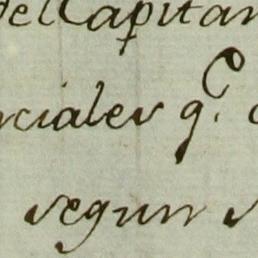 del Capitan
rciales q.e
segun s